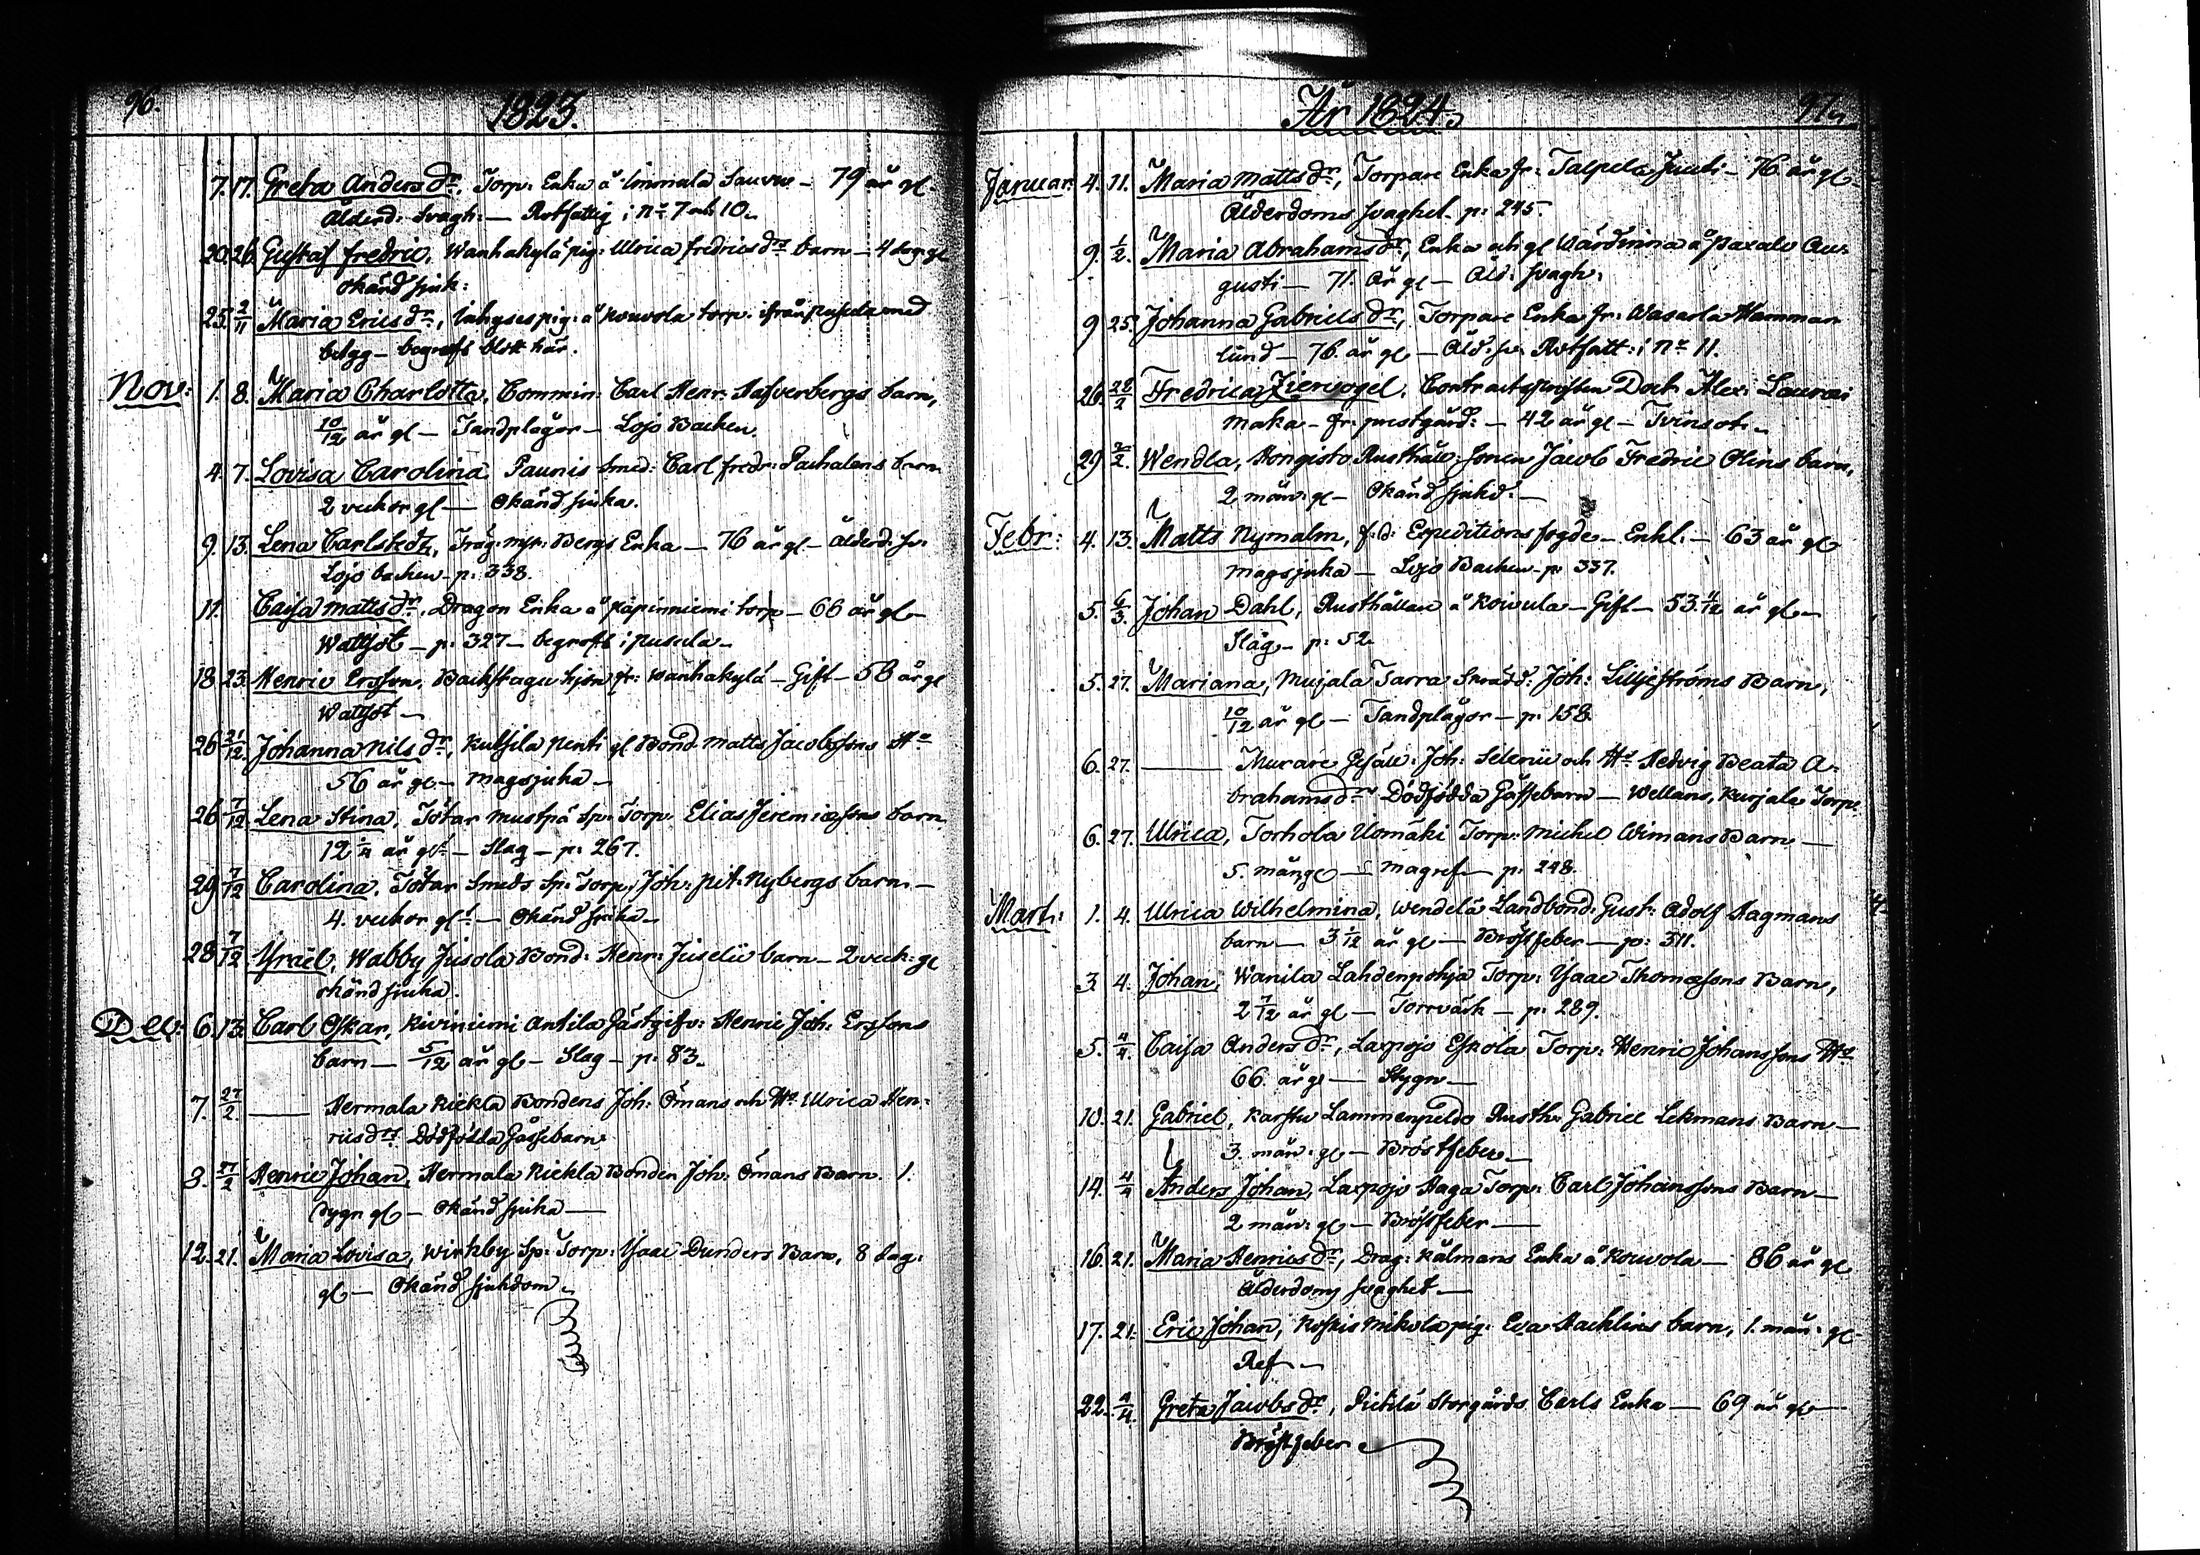 96.
1823.
7. 17. Greta Anders dr. Torp: Enka å Immula Sauru – 79 år gl –
Ålderd: Svagh: — Rotfattig i No 7 och 10.
20. 26. Gustaf Fredric, Wanhakylä pig: Ulrica Fredrics drs barn – 4 dag: gl
Okänd sjuk:
25. 2/11 Maria Erics dr, Inhyses pig: å Kouvola torp. ifrån Pusula med
betyg – begrofs blott här.
Nov: 1. 8. Maria Charlotta, Commin: Carl Henr: Hafverbergs barn,
10/12 år gl – Tandplågor – Lojo Backen.
4. 7. Lovisa Carolina Paunis Smed: Carl Fredr: Pachalens barn
2 veckor gl — Okänd sjuka.
9. 13. Lena Carlstedt, Träg: mst: Bergs Enka – 76 år gl – Ålderd: sv:
Lojo backen – p: 338.
11. Caisa Matts dr, Dragon Enka å Päpinniemi torp – 66 år gl –
Wattsot – p: 327 – begrofs i Pusula –
18. 23. Henric Ersson, Backstugu hjon fr: Wanhakylä – Gift – 58 år gl
Wattsot –
26 21/12. Johanna Nils dr, Kutsila Penti gl Bond. Matts Jacobssons Hu
56 år gl – Magsjuka –
26 7/12 Lena Stina, Tötar Mustpä Sp: Torp: Elias Jeremiæsons barn
12 1/4 år gl – Slag – p: 267.
29 7/12 Carolina, Tötar Smeds Sp: Torp: Joh: Pet: Nybergs barn –
4. veckor gl – Okänd sjuka –
28 7/12 Ysraël, Wabby Jusola Bond: Henr: Juselii barn – 2 veck: gl
Okänd sjuka.
Dec: 6. 13. Carl Oskar, Kiviniemi Antila Gästgifv: Henric Joh: Erssons
barn – 5/12 år gl – Slag – p: 83.
7. 27/2 —— Hermala Kiekla Bondens Joh: Ömans och Hu Ulrica Hen-
rics drs Dödfödda Gåssebarn.
8. 27/2 Henric Johan, Hermala Kiekla Bonden Joh: Ömans Barn. 1.
dygn gl – Okänd sjuka —
12. 21. Maria Lovisa, Wirkby Sp: Torp: Ysaac Dunders Barn, 8 dag:
gl – Okänd sjukdom.
År 1824.
97.
Januar: 4. 11. Maria Matts dr, Torpare Enka fr: Talpela Juuti – 76. år gl –
Ålderdoms svaghet – p: 245.
9. 1/2. Maria Abrahams dr, Enka och gl Wärdinna å Paxalu Au-
gusti – 71. år gl – Åld: svagh:
9 25. Johanna Gabriels dr, Torpare Enka fr: Wasarla Hammar-
lund – 76. år gl – Åld: sv: Rotfatt: i No 11.
26. 28/2 Fredrica Ziervogel, Contractsprosten Doct: Alex: Lauræi
maka – fr: prestgård: – 42 år gl – Tvinsot.
29. 2. Wendla, Hongisto Rusthåll: sonen Jacob Fredric Olins barn,
2 mån: gl – Okänd sjukd: –
Febr: 4. 13. Matts Nymalm, f: d: Expeditions fogde – Enkl: – 63 år gl
Magsjuka – Lojo Backen – p: 337.
5. 6/3. Johan Dahl, Rusthållare å Koivula – Gift – 53 4/12 år gl –
Slag – p: 52.
5. 27. Mariana, Mujala Tarra Skrädd: Joh: Liljeströms Barn,
10/12 år gl – Tandplågor – p: 158.
6. 27. —— Murare Gesäll: Joh: Selenii och Hu Hedvig Beata A-
brahams drs Dödfödda Gåssebarn – Wellans, Kurjala Torp.
6. 27. Ulrica, Torhola Uomäki Torp: Michel Wimans Barn –
5. mån gl – Magref – p: 248.
Mart: 1. 4. Ulrica Wilhelmina, Wendelä Landbond: Gust: Adolf Hagmans
barn – 3 1/12 år gl – Bröstfeber – p: 311.
3 4. Johan, Wanila Lahdenpohja Torp: Ysaac Thomæsons Barn,
2 7/12 år gl – Torrvärk – p: 289.
5. 4/4. Caisa Anders dr, Laxpojo Eskola Torp: Henric Johanssons Hu
66. år gl — Stygn –
10. 21. Gabriel, Karstu Lammenpeldo Rusth: Gabriel Lekmans Barn –
3. mån: gl – Bröstfeber –
14. 4/4 Anders Johan, Laxpojo Haga Torp: Carl Johanssons Barn –
2 mån: gl – Bröstfeber —
16. 21. Maria Henrics dr, Drag: Kälmans Enka å Kouvola – 86 år gl
Ålderdoms svaghet —
17. 21. Eric Johan, Koskis Mikola pig: Eva Hacklins barn, 1. mån: gl –
Ref –
22. 4/4. Greta Jacobs dr, Pickilä Storgårds Carls Enka — 69 år gl —
Bröstfeber